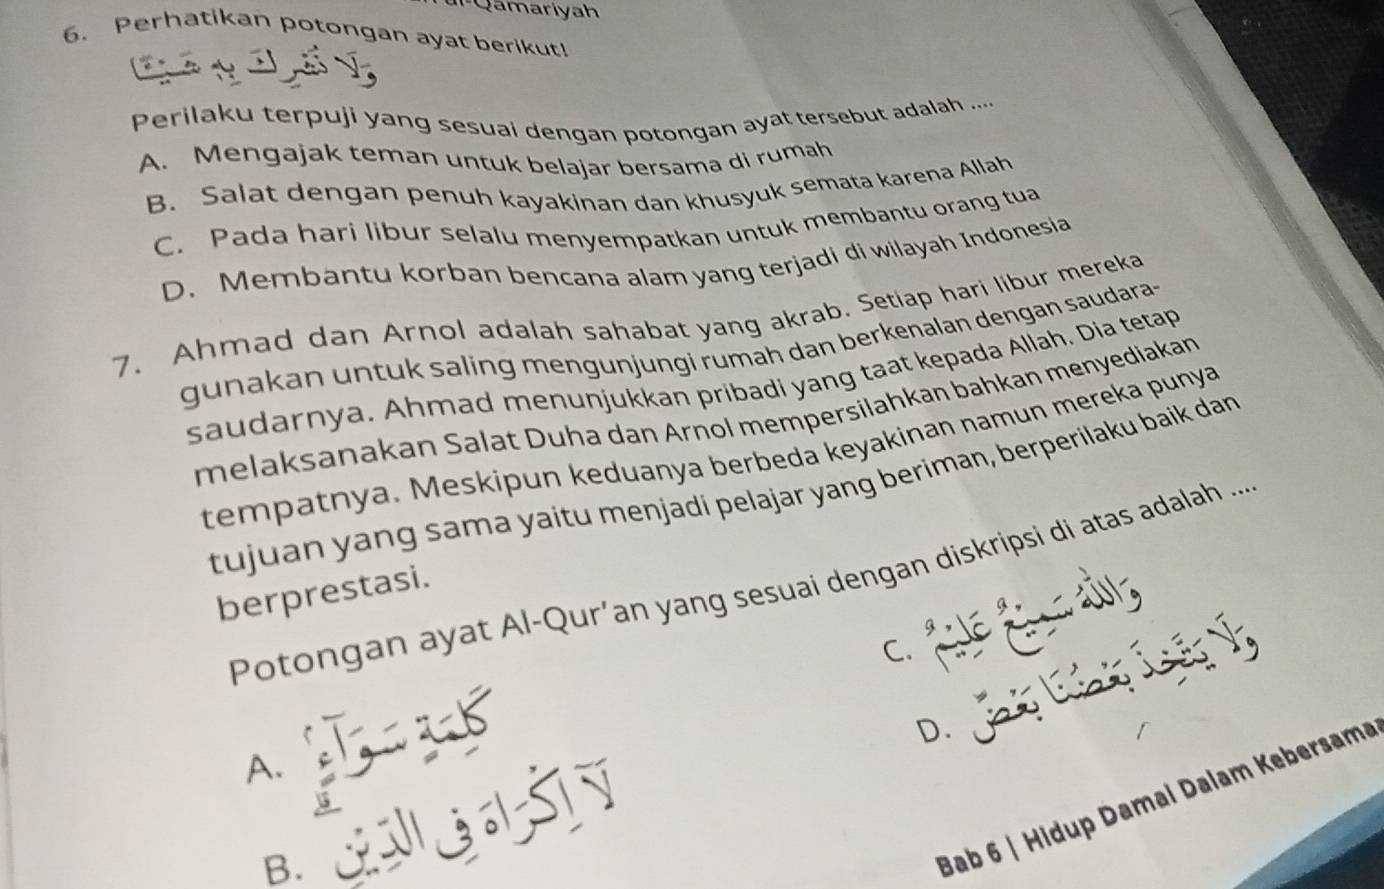 Qamariyah
6. Perhatikan potongan ayat berikut!
وَلَا نُشْرِكَ بِهٖ شَيْـًٔا
Perilaku terpuji yang sesuai dengan potongan ayat tersebut adalah ....
A. Mengajak teman untuk belajar bersama di rumah
B. Salat dengan penuh kayakinan dan khusyuk semata karena Allah
C. Pada hari libur selalu menyempatkan untuk membantu orang tua
D. Membantu korban bencana alam yang terjadi di wilayah Indonesia
7. Ahmad dan Arnol adalah sahabat yang akrab. Setiap hari libur mereka
gunakan untuk saling mengunjungi rumah dan berkenalan dengan saudara-
saudarnya. Ahmad menunjukkan pribadi yang taat kepada Allah. Dia tetap
melaksanakan Salat Duha dan Arnol mempersilahkan bahkan menyediakan
tempatnya. Meskipun keduanya berbeda keyakinan namun mereka punya
tujuan yang sama yaitu menjadi pelajar yang beriman, berperilaku baik dan
berprestasi.
Potongan ayat Al-Qur'an yang sesuai dengan diskripsi di atas adalah ....
A. كَلِمَةٍ سَوَآءٍ
B. لَآ اِكْرَاهَ فِى الدِّيْنِۗ
C. وَاللّٰهُ سَمِيْعٌ عَلِيْمٌ
D. وَلَا يَتَّخِذَ بَعْضُنَا بَعْضًا
Bab 6 | Hidup Damai Dalam Kebersamaa